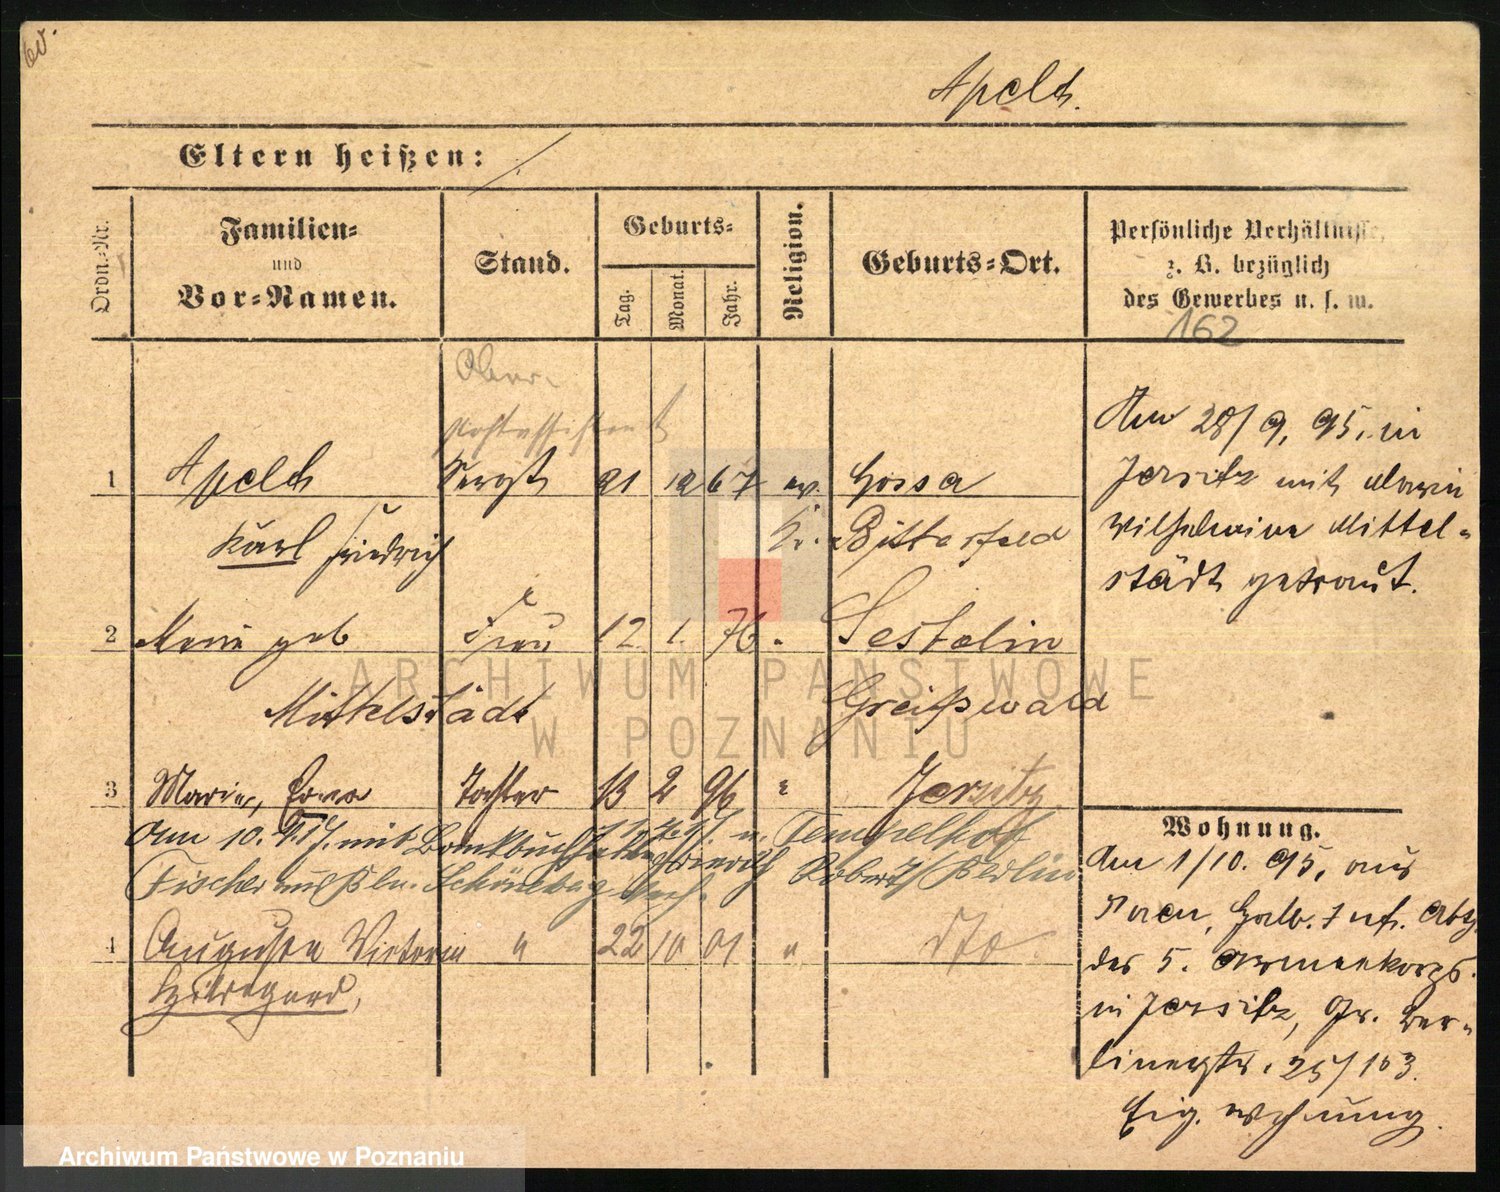 Apelt.
Eltern heißen: /
Ordn.-Nr.
Familien-
und
Vor-Namen.
Stand.
Geburts-
Tag.
Monat.
Jahr.
Religion.
Geburts-Ort.
Persönliche Verhältnisse,
z. B. bezüglich
des Gewerbes u. s. w.
162
Ober-
postassistent
1 Apelt Sergt 21 12 67 ev. Gossa
Karl Friedrich Kr. Bitterfeld
2 Marie geb Frau 12. 1. 76 " Sestelin
Mittelstädt Greifswald
3 Marie, Erna Tochter 13 2 96 " Jersitz
Am 10. mit Bankbuchhalter Friedrich Robert
Fischer aus Bln. Schöneberg verh. Tempelhof
Berlin
4 Auguste Victoria " 22 10 01 " dto
Hildegard,
Am 28/9. 95. in
Jersitz mit Marie
Wilhelmine Mittel-
städt getraut.
Wohnung.
Am 1/10. 95, aus
Inf.
des 5. Armeekorps.
in Jersitz, Gr. Ber-
linerstr. 25/103.
Eig. Wohnung.
ARCHIWUM PAŃSTWOWE
W POZNANIU
Archiwum Państwowe w Poznaniu